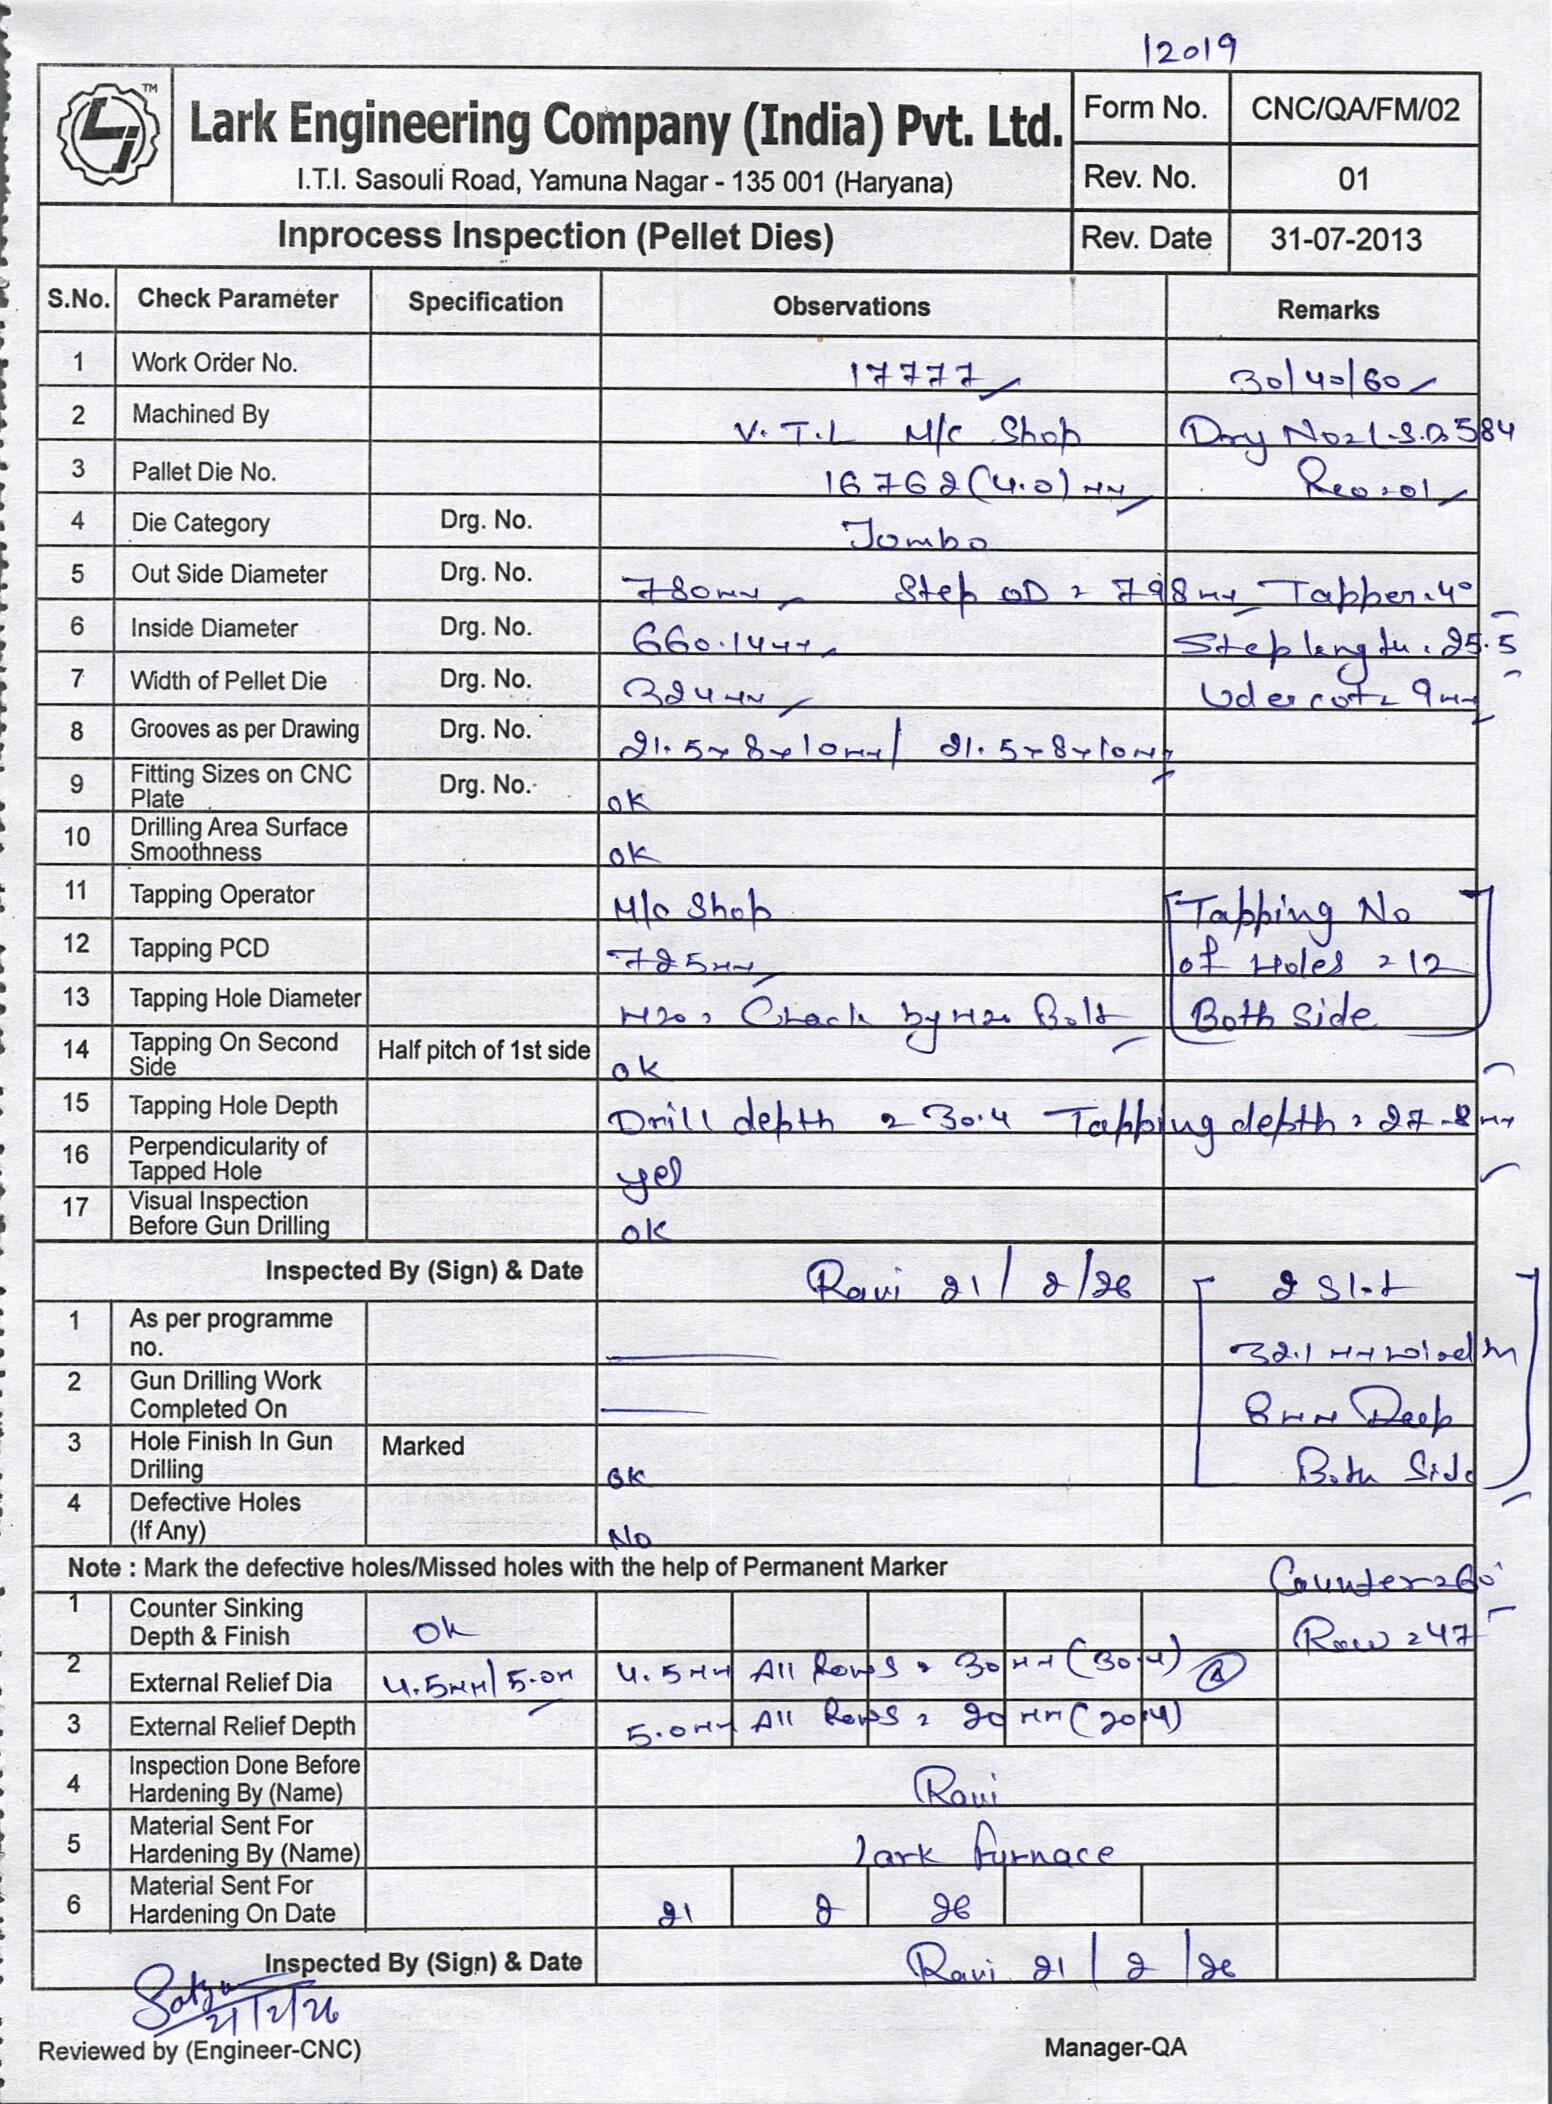 12019
TM
Lark Engineering Company (India) Pvt. Ltd.
I.T.I. Sasouli Road, Yamuna Nagar - 135 001 (Haryana)
Form No. CNC/QA/FM/02
Rev. No. 01
Inprocess Inspection (Pellet Dies) Rev. Date 31-07-2013
S.No. Check Parameter Specification Observations Remarks
1 Work Order No. 17777 30/40/60
2 Machined By V.T.L M/C Shop Drg No = L.S.D. 584
3 Pallet Die No. 16762 (4.0) mm Rev = 01
4 Die Category Drg. No. Jombo
5 Out Side Diameter Drg. No. 780mm Step OD = 798mm Tapper = 4°
6 Inside Diameter Drg. No. 660.14mm Step length = 25.5
7 Width of Pellet Die Drg. No. 324mm Udercot = 9mm
8 Grooves as per Drawing Drg. No. 21.5×8×10mm / 21.5×8×10mm
9 Fitting Sizes on CNC Plate Drg. No. ok
10 Drilling Area Surface Smoothness ok
11 Tapping Operator M/c Shop Tapping No
12 Tapping PCD 725mm of Holes = 12
13 Tapping Hole Diameter M20 = Check by M20 Bolt Both Side
14 Tapping On Second Side Half pitch of 1st side ok
15 Tapping Hole Depth Drill depth = 30.4 Tapping depth = 27.8mm
16 Perpendicularity of Tapped Hole yes
17 Visual Inspection Before Gun Drilling ok
Inspected By (Sign) & Date Ravi 21/2/26 2 Slot
1 As per programme no. 32.1 mm
2 Gun Drilling Work Completed On 8mm Deep
3 Hole Finish In Gun Drilling Marked ok Both Side
4 Defective Holes (If Any) No
Note : Mark the defective holes/Missed holes with the help of Permanent Marker Counter = 60°
1 Counter Sinking Depth & Finish Ok Row = 47
2 External Relief Dia 4.5mm/5.0m 4.5mm All Rows = 30mm (30.4)
3 External Relief Depth 5.0mm All Rows = 20mm (20.4)
4 Inspection Done Before Hardening By (Name) Ravi
5 Material Sent For Hardening By (Name) Lark furnace
6 Material Sent For Hardening On Date 21 2 26
Inspected By (Sign) & Date Ravi 21/2/26
21/2/26
Reviewed by (Engineer-CNC) Manager-QA